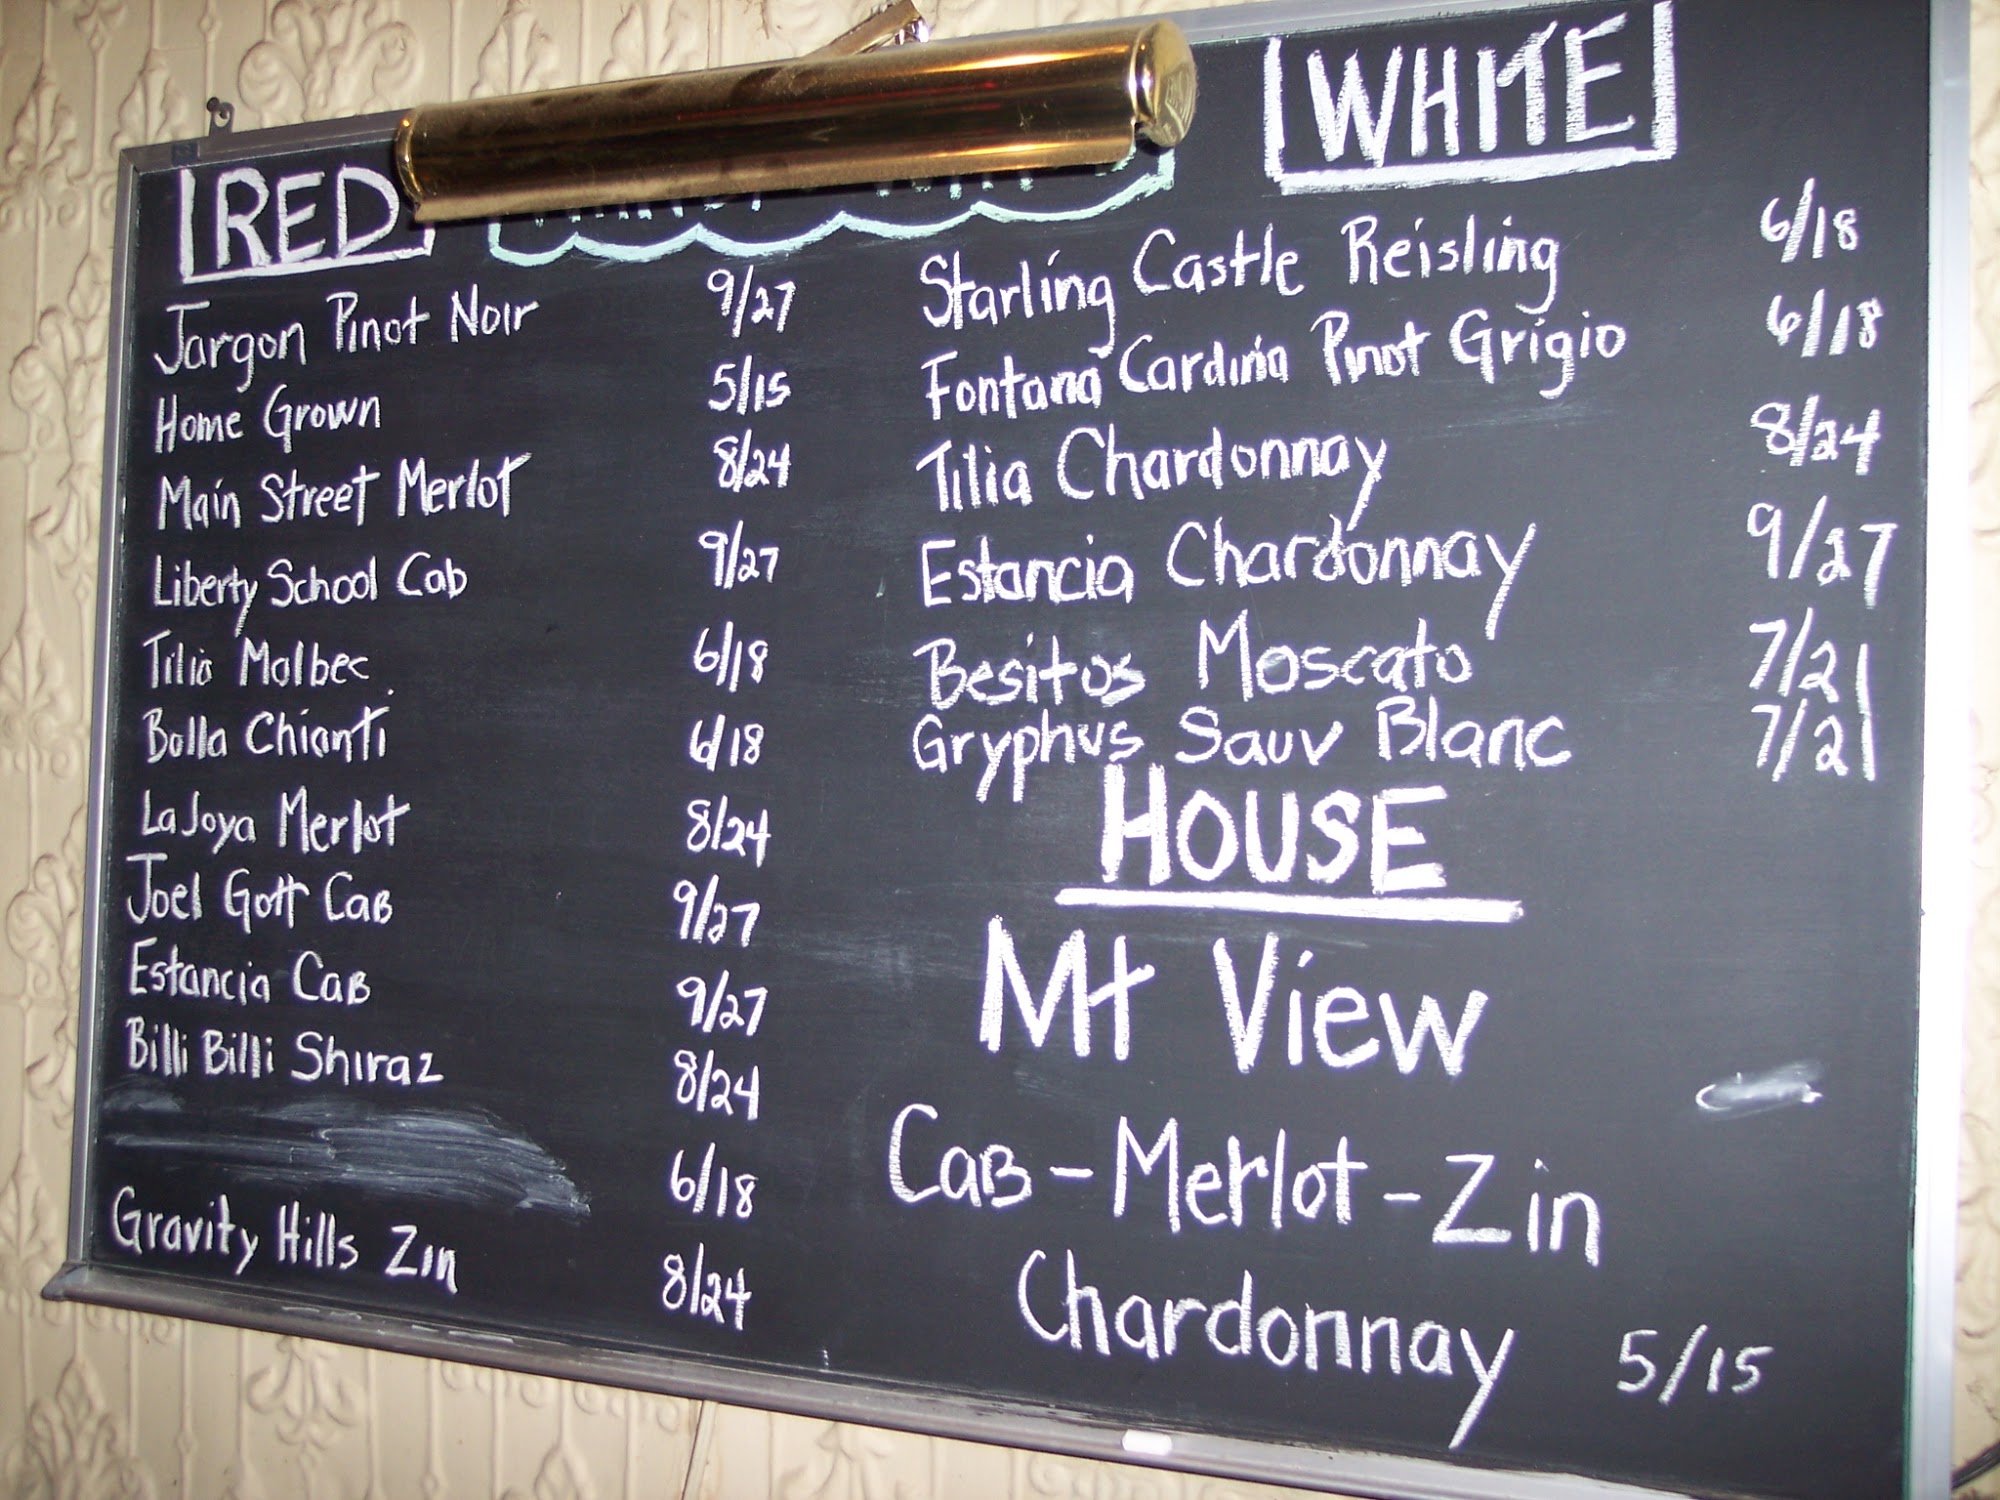 RED
Jargon Pinot Noir 9/27
Home Grown 5/15
Main Street Merlot 8/24
Liberty School Cab 9/27
Tilia Malbec 6/18
Bolla Chianti 6/18
LaJoya Merlot 8/24
Joel Gott CaB 9/27
Estancia CaB 9/27
Billi Billi Shiraz 8/24
6/18
Gravity Hills Zin 8/24
WHITE
Starling Castle Reisling 6/18
Fontana Cardina Pinot Grigio 6/18
Tilia Chardonnay 8/24
Estancia Chardonnay 9/27
Besitos Moscato 7/21
Gryphus Sauv Blanc 7/21
HOUSE
Mt View
CaB - Merlot - Zin
Chardonnay 5/15